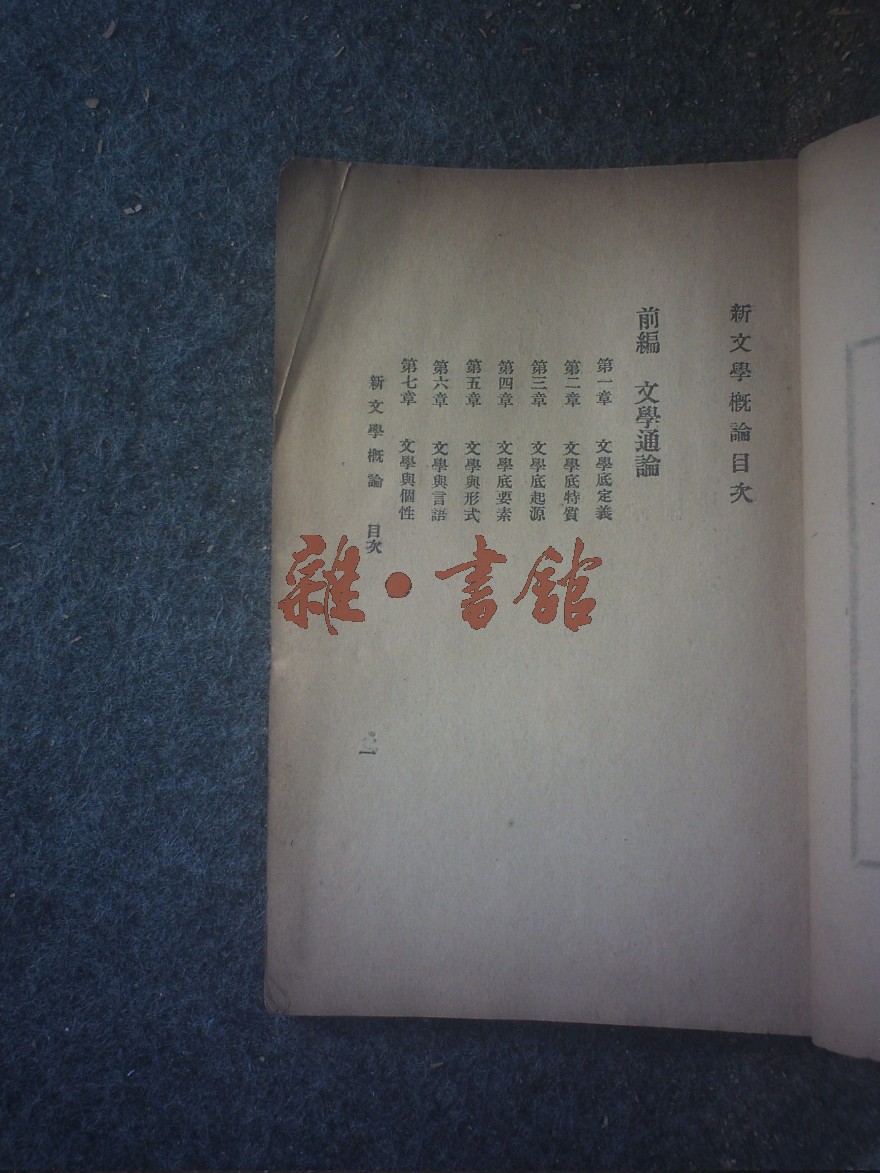 新文學概論目次
前編 文學通論
第一章 文學底定義
第二章 文學底特質
第三章 文學底起源
第四章 文學底要素
第五章 文學與形式
第六章 文學與言語
第七章 文學與個性
新文學概論 目次
一
雜·書館